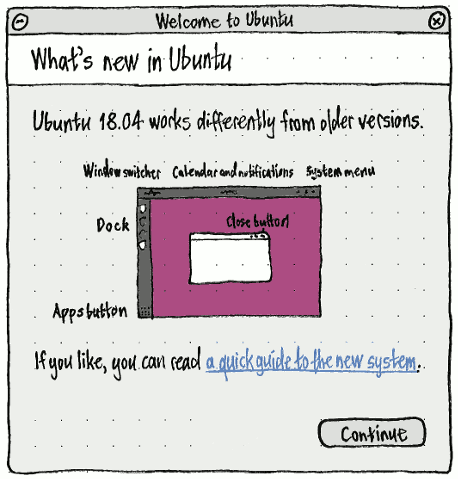 Welcome to Ubuntu
What's new in Ubuntu
Ubuntu 18.04 works differently from older versions.
Window switcher Calendar and notifications System menu
Close button
Dock
Apps button
If you like, you can read a quick guide to the new system.
Continue